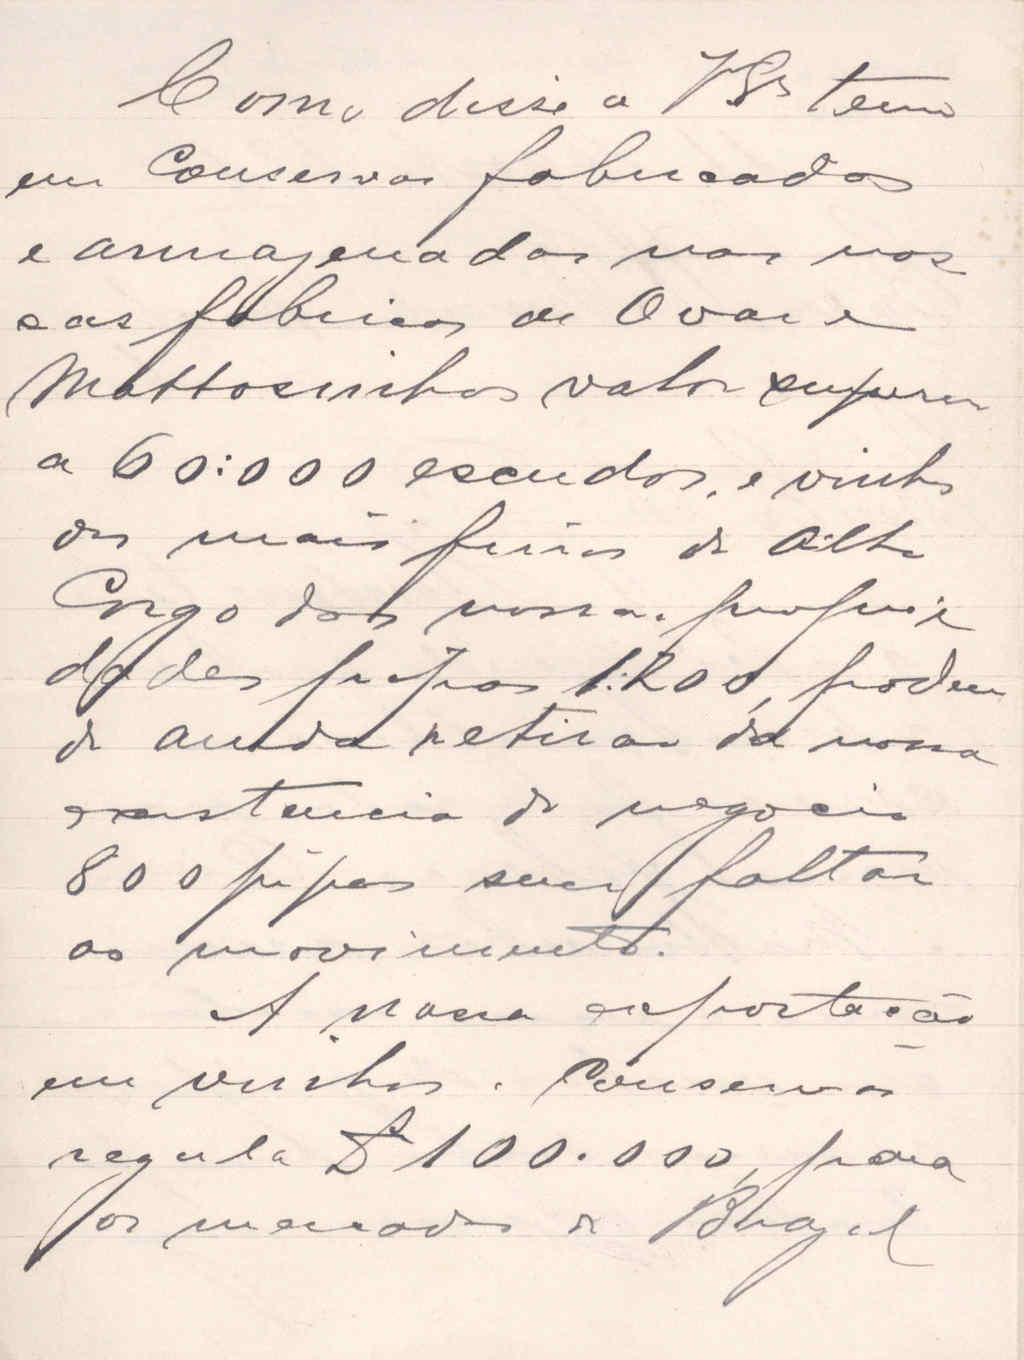 Como disse a VSas temo
em Conservas fabricados
e armazenados nas nos
sas fabricas de Ovar e
Mattosinhos valor superior
a 60:000 escudos, e vinho
dos mais finos do Alto
Corgo das nossas proprie
dades pipas 1:200, poden
do ainda retirar da nossa
existencia de negocio
800 pipas sem faltar
ao movimento.
A nossa exportação
em vinhos e Conservas
regula £ 100.000, para
os mercados do Brazil